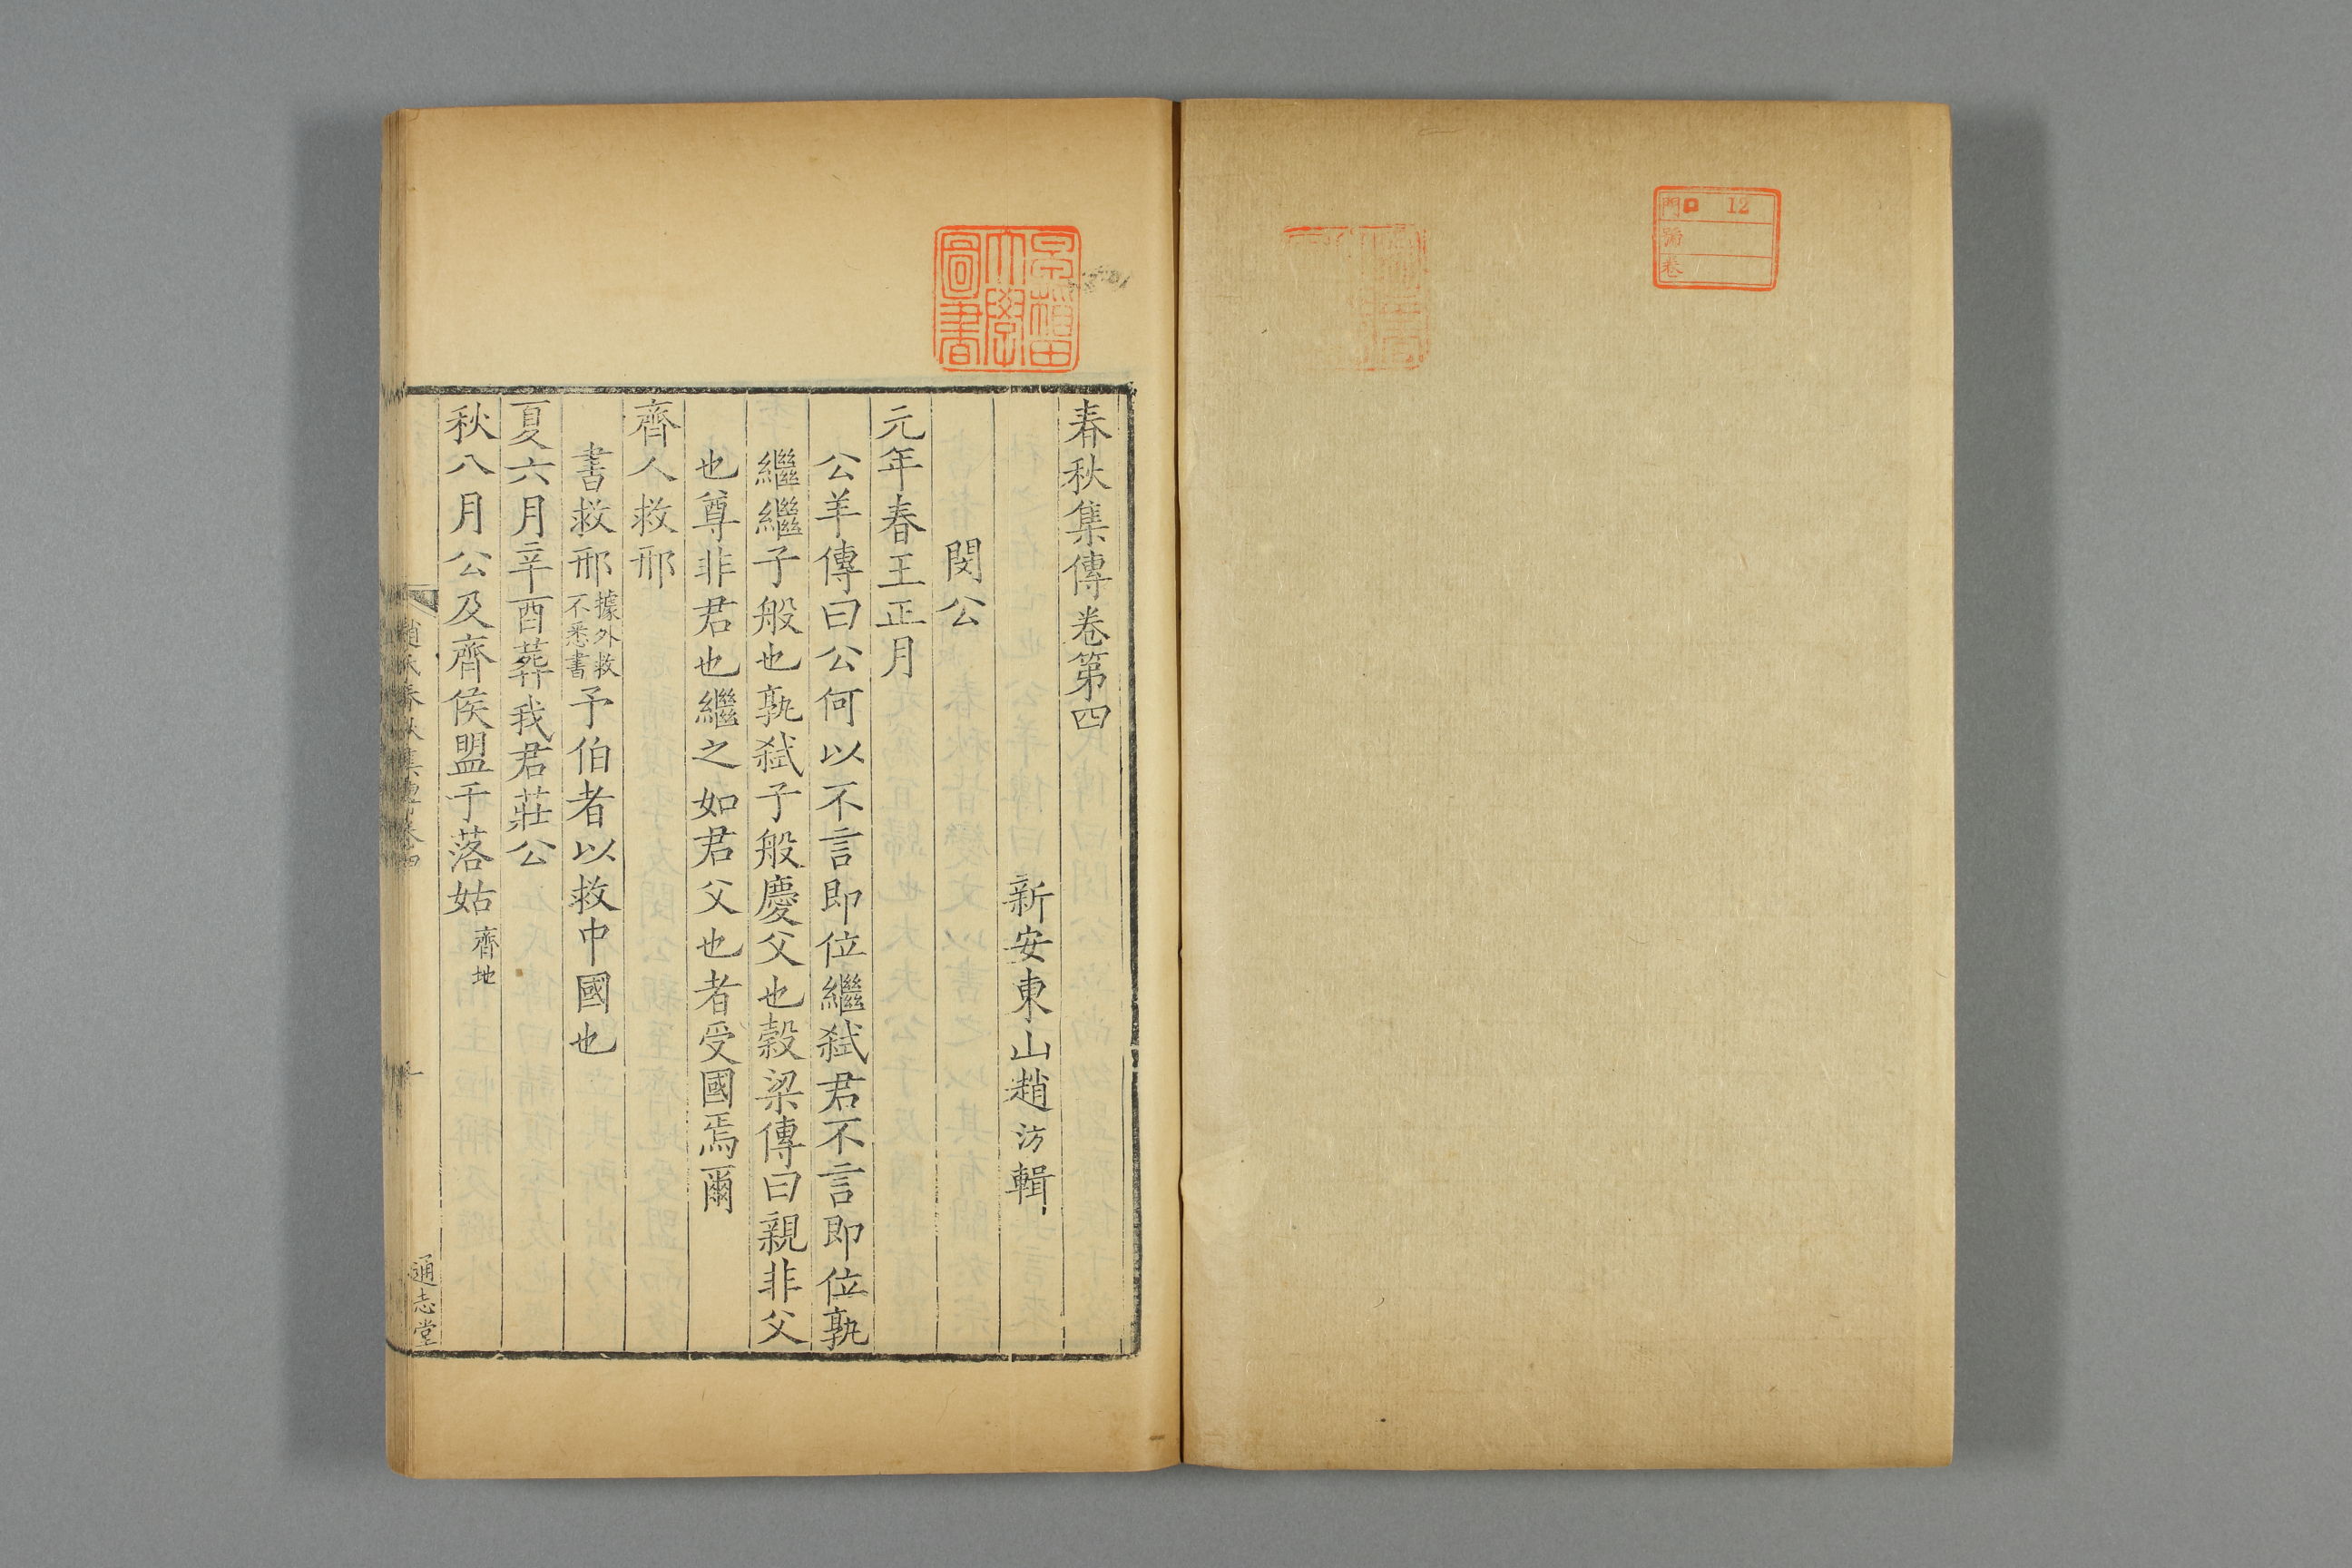 門口 12
号
卷
早稲田
大學
圖書
春秋集傳卷第四
新安東山趙汸輯
閔公
元年春王正月
公羊傳曰公何以不言即位繼弑君不言即位孰
繼繼子般也孰弑子般慶父也穀梁傳曰親非父
也尊非君也繼之如君父也者受國焉爾
齊人救邢
書救邢據外救不悉書予伯者以救中國也
夏六月辛酉葬我君莊公
秋八月公及齊侯盟于落姑齊地
趙氏春秋集傳卷四
一
通志堂